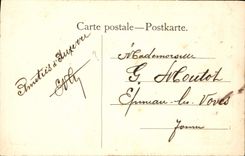 Carte postale — Postkarte.
Amitiés d'Auxerre
Mademoiselle
G. Moutot
Épineau-les-Voves
Yonne